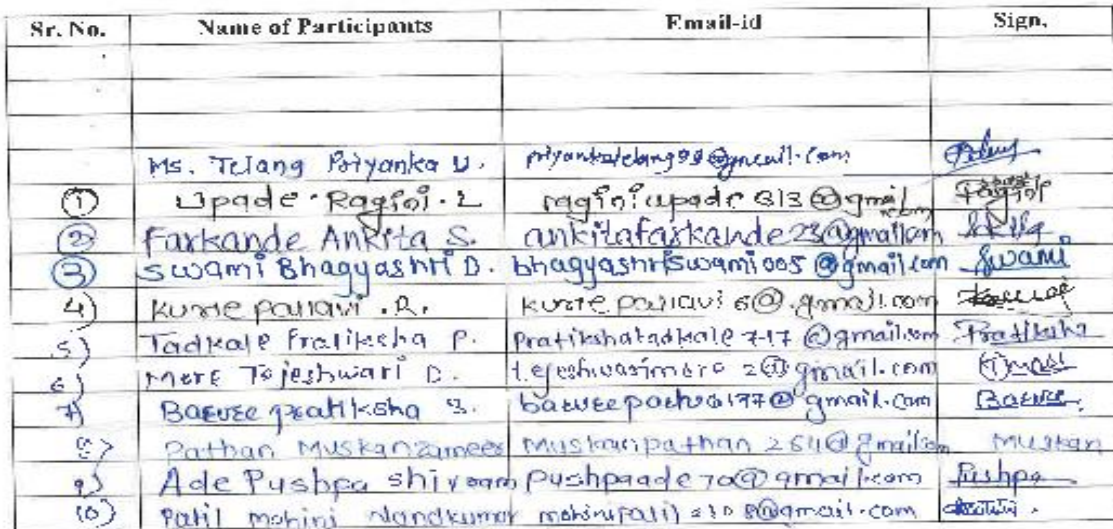 Sr. No. Name of Participants Email-id Sign.
Ms. Telang Priyanka V. priyankatelang99@gmail.com
① Upade Ragini L ragini upade 313@gmail.com Ragini
② Farkande Ankita S. ankitafarkande23@gmail.com
③ Swami Bhagyashri D. bhagyashriswami005@gmail.com Swami
4) pallavi . R. pallavi 6@.gmail.com
5) Tadkale Pratiksha P. Pratikshatadkale717@gmail.com Pratiksha
6) More Tejeshwari D. tejeshwarimore 2@gmail.com
7) pratiksha S.
8) Pathan Muskanzameer Muskanpathan 264@gmail.com Muskan
9) Ade Pushpa shivram pushpaade70@gmail.com Pushpa
10) Patil mohini Nandkumar